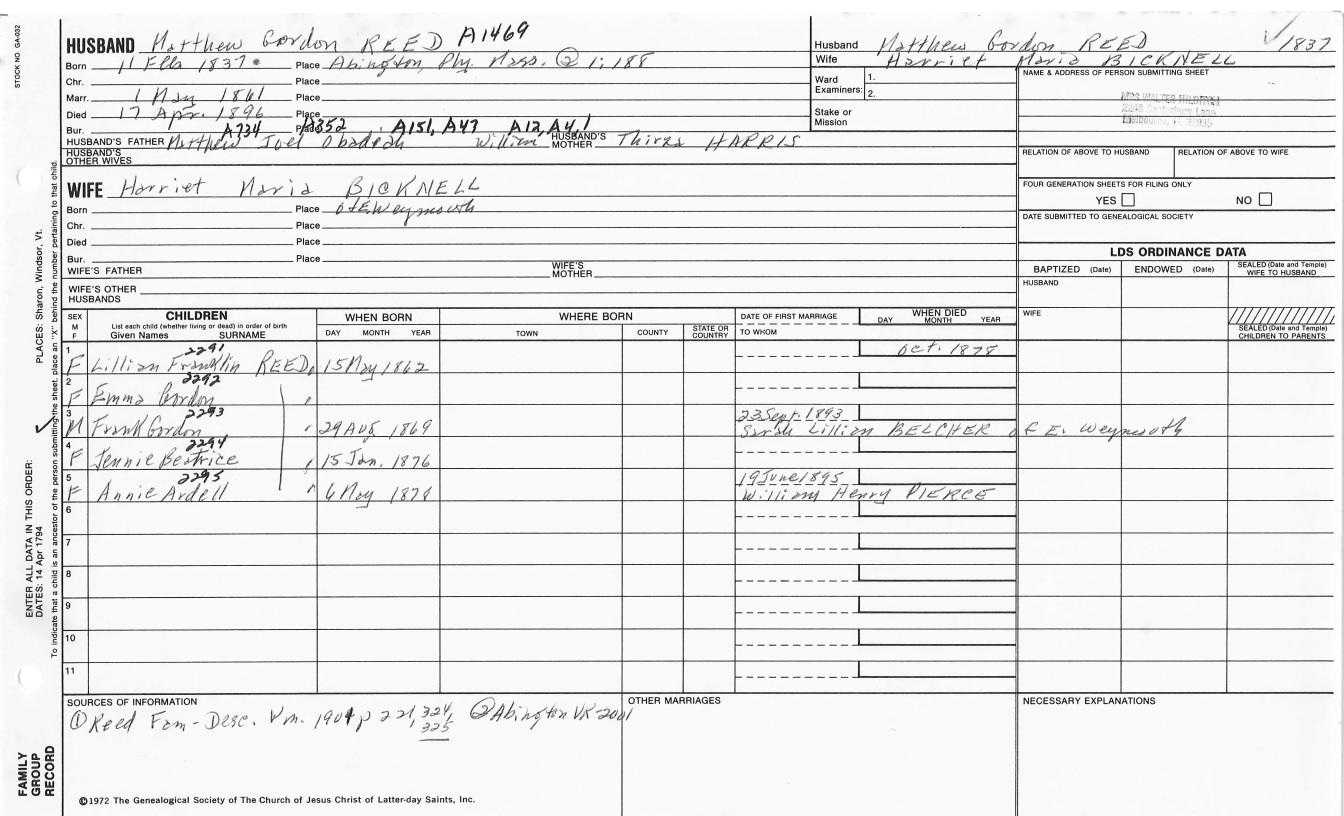 STOCK NO. GA-032
HUSBAND Matthew Gordon REED A1469
Husband Matthew Gordon REED ✓1837
Wife Harriet Maria BICKNELL
Born 1837 Place Abington, Ply. Mass. ② 1;188
Chr. Place
Marr. 1 May 1861 Place
Died 17 Apr. 1896 Place
Bur. A734 Place A352 A151, A47 A12, A4, 1
HUSBAND'S FATHER Matthew Joel Obadeah William HUSBAND'S MOTHER Thirza HARRIS
HUSBAND'S OTHER WIVES
Ward Examiners: 1.
2.
Stake or Mission
NAME & ADDRESS OF PERSON SUBMITTING SHEET
MRS WALTER
RELATION OF ABOVE TO HUSBAND RELATION OF ABOVE TO WIFE
FOUR GENERATION SHEETS FOR FILING ONLY
YES NO
DATE SUBMITTED TO GENEALOGICAL SOCIETY
WIFE Harriet Maria BICKNELL
Born Place of E. Weymouth
Chr. Place
Died Place
Bur. Place
WIFE'S FATHER WIFE'S MOTHER
WIFE'S OTHER HUSBANDS
LDS ORDINANCE DATA
BAPTIZED (Date) ENDOWED (Date) SEALED (Date and Temple) WIFE TO HUSBAND
HUSBAND
WIFE
SEALED (Date and Temple) CHILDREN TO PARENTS
SEX M F CHILDREN WHEN BORN WHERE BORN DATE OF FIRST MARRIAGE WHEN DIED
List each child (whether living or dead) in order of birth
Given Names SURNAME DAY MONTH YEAR TOWN COUNTY STATE OR COUNTRY TO WHOM DAY MONTH YEAR
1 2291 Oct. 1878
F Lillian Franklin REED 15 May 1862
2 2292
F Emma Gordon
3 2293 23 Sept. 1893
M Frank Gordon 29 Aug 1869 Sarah Lillian BELCHER of E. Weymouth
4 2294
F Jennie Beatrice 15 Jan. 1876
5 2295 19 June 1895
F Annie Ardell 6 May 1878 William Henry PIERCE
6
7
8
9
10
11
SOURCES OF INFORMATION
① Reed Fam-Desc. Wm. 1901 p 221, 324, 325 ② Abington VR 2001
OTHER MARRIAGES
NECESSARY EXPLANATIONS
©1972 The Genealogical Society of The Church of Jesus Christ of Latter-day Saints, Inc.
FAMILY GROUP RECORD
ENTER ALL DATA IN THIS ORDER:
DATES: 14 Apr 1794
PLACES: Sharon, Windsor, Vt.
To indicate that a child is an ancestor of the person submitting the sheet, place an "X" behind the number pertaining to that child.